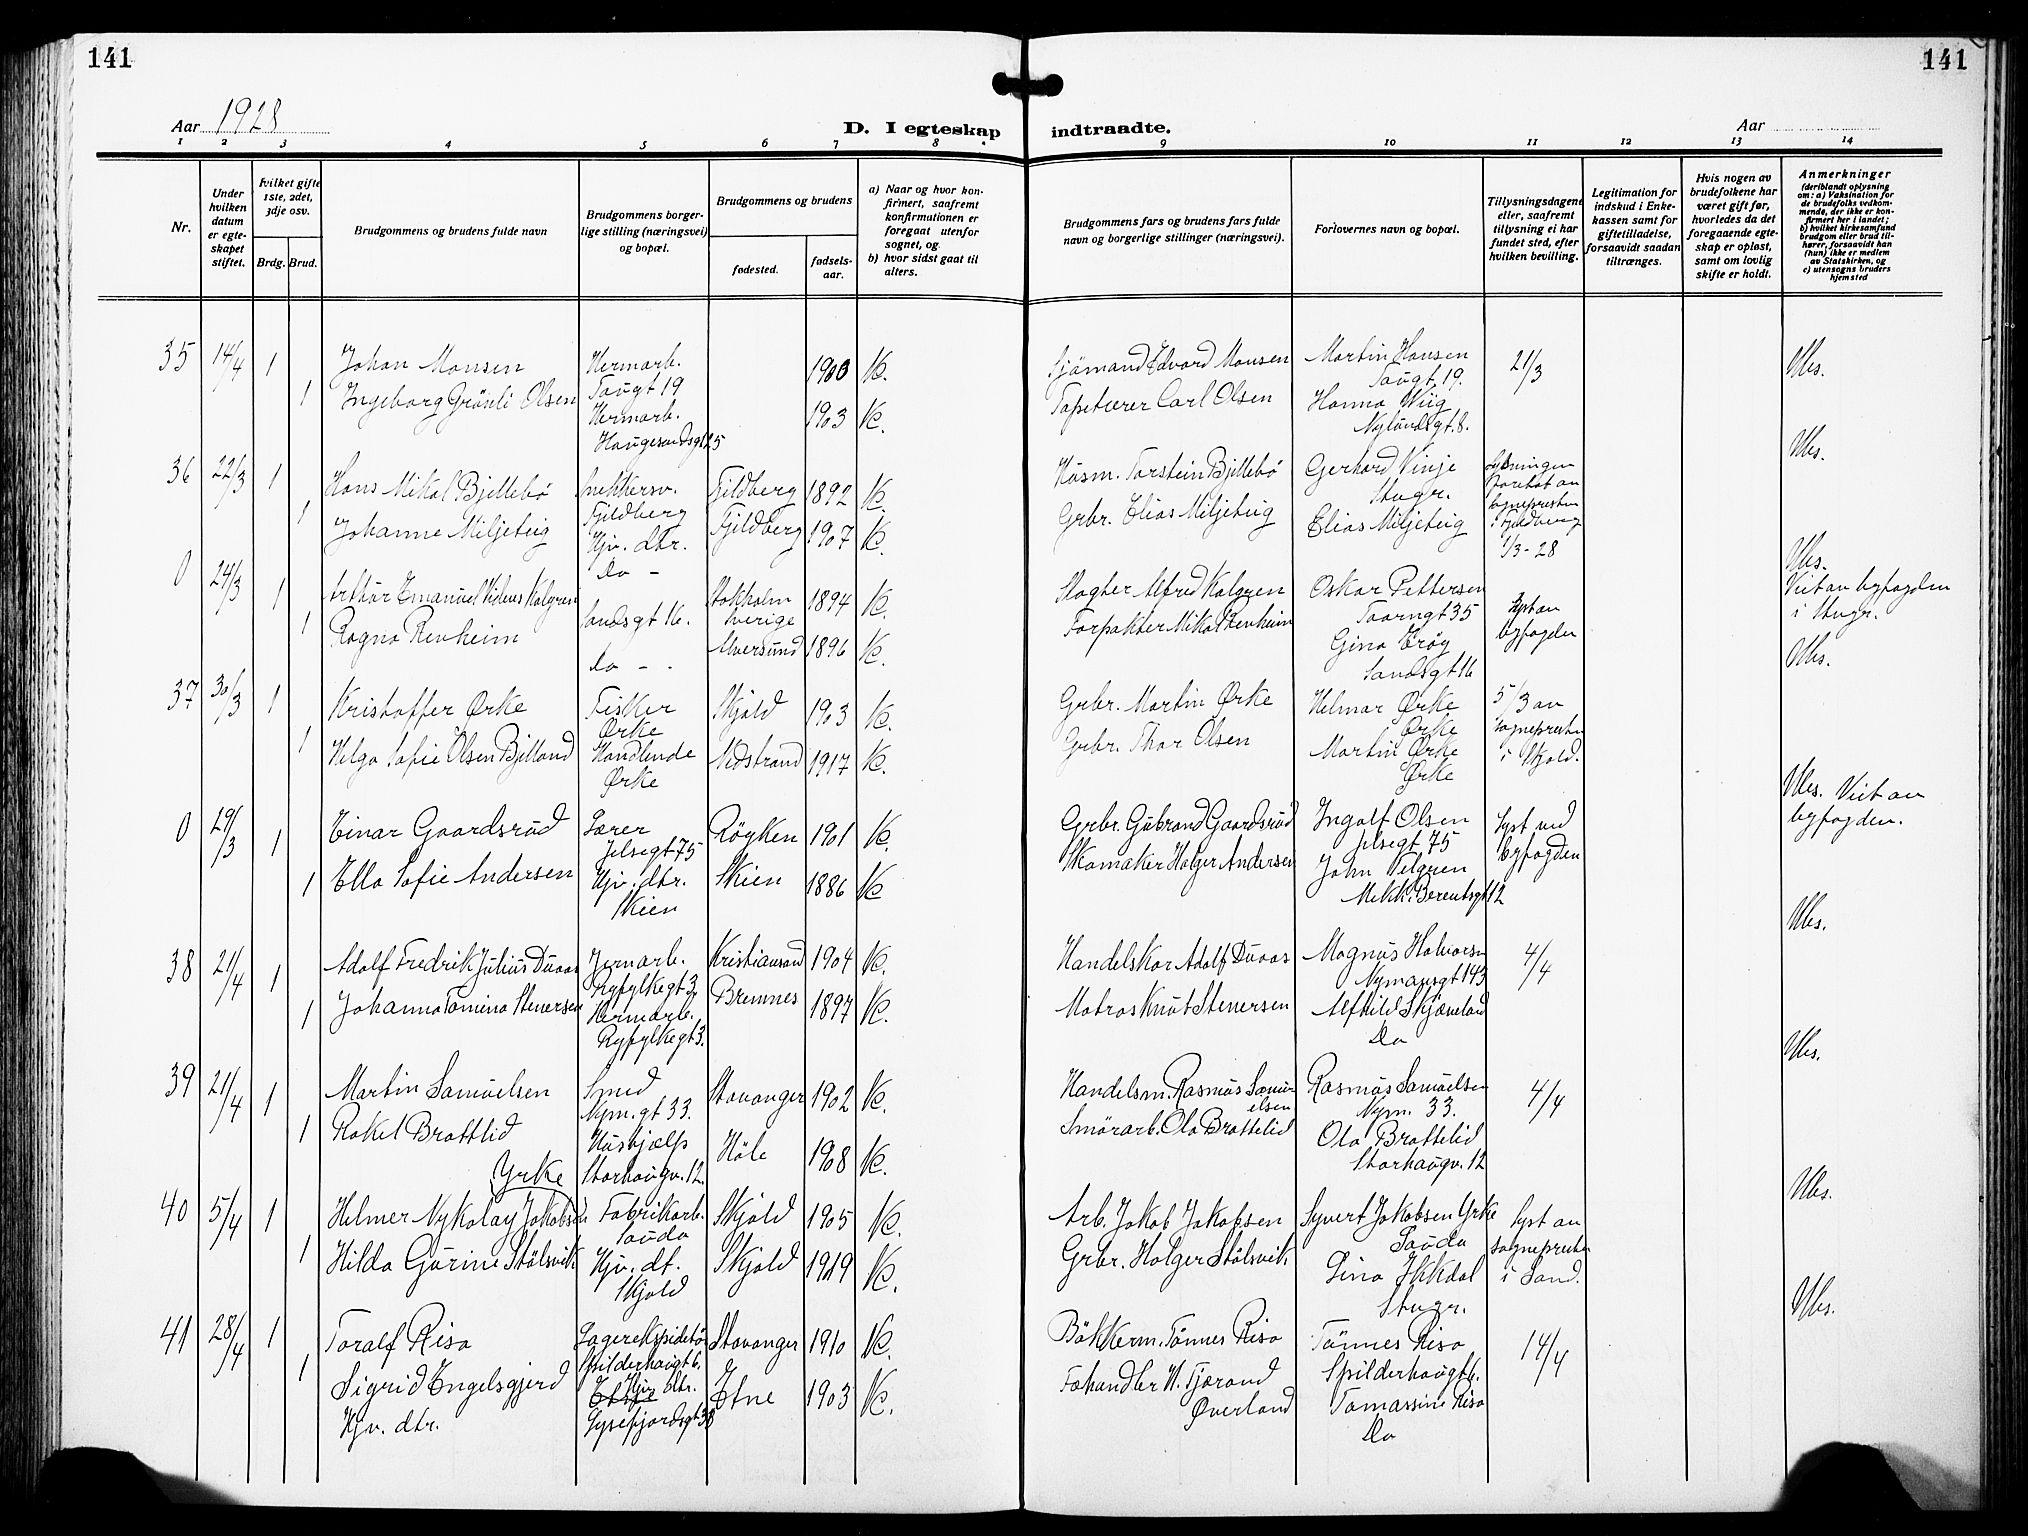 141
141
Aar 1928
D. I egteskap indtraadte.
Aar
1 2 3 4 5 6 7 8 9 10 11 12 13 14
Nr.
Under hvilken datum er egteskapet stiftet.
Hvilket gifte 1ste, 2det, 3dje osv.
Brdg. Brud.
Brudgommens og brudens fulde navn
Brudgommens borgerlige stilling (næringsvei) og bopæl.
Brudgommens og brudens
fødested.
fødselsaar.
a) Naar og hvor konfirmert, saafremt konfirmationen er foregaat utenfor sognet, og
b) hvor sidst gaat til alters.
Brudgommens fars og brudens fars fulde navn og borgerlige stillinger (næringsvei).
Forlovernes navn og bopæl.
Tillysningsdagene eller, saafremt tillysning ei har fundet sted, efter hvilken bevilling.
Legitimation for indskud i Enkekassen samt for giftetilladelse, forsaavidt saadan tiltrænges.
Hvis nogen av brudefolkene har været gift før, hvorledes da det foregaaende egteskap er opløst, samt om lovlig skifte er holdt.
Anmerkninger
(deriblandt oplysning om: a) Vaksination for de brudefolks vedkommende, der ikke er konfirmert her i landet; b) hvilket kirkesamfund brudgom eller brud tilhører, forsaavidt han (hun) ikke er medlem av Statskirken, og c) utensogns bruders hjemsted
35 14/4 1 Johan Monsen Hermarb. Tougt 19 1903 K. Sjömand Edvard Monsen Martin Hansen Tougt. 19. 21/3 Ubs.
1 Ingeborg Grönli Olsen Hermarb. Haugesundsgt 25 1903 K. Tapetserer Carl Olsen Hanna Wiig Nylundsgt. 8.
36 22/3 1 Hans Mikal Bjellebö Snekkersv. Fjeldberg Fjeldberg 1892 K. Husm. Torstein Bjellebö Gerhard Vinje Stvgr. Lysningen foretat av sognepresten i Fjeldberg 1/3-28 Ubs.
1 Johanne Miljeteig Hjv. dtr. Do - Fjeldberg 1907 K. Grbr. Elias Miljeteig Elias Miljeteig
0 24/3 1 Arthur Emanuel Kalgren Sandsgt 16. Stokholm Sverige 1894 K. Slagter Alfred Kalgren Oskar Pettersen Taarngt 35 Lyst av byfogden Ubs. Viet av byfogden i Stvgr.
1 Ragna Revheim Do - . Alversund 1896 K. Forpakter Mikal Revheim Gina Erøy Sandsgt 16
37 30/3 1 Kristoffer Ørke Fisker Ørke Skjold 1903 K. Grbr. Martin Ørke Helmar Ørke Ørke 5/3 av sogneprsten i Skjold. Ubs.
1 Helga Sofie Olsen Bjelland Handlende Ørke Nedstrand 1917 K. Grbr. Thor Olsen Martin Ørke Ørke
0 29/3 1 Einar Gaardsrud Lærer Jelsegt 75 Røyken 1901 K. Grbr. Gubrand Gaardsrud Ingolf Olsen Jelsegt 75 Lyst ved byfogden Ubs. Viet av byfogden.
1 Ella Sofie Andersen Hjv. dtr. Skien Skien 1886 K Skomaker Holger Andersen John Velgren Mekk. Berentsgt 12
38 21/4 1 Adolf Fredrik Julius Duaas Jernarb. Ryfylkegt 3 Kristiansand 1904 K. Handelskar Adolf Duaas Magnus Halvorsen Nymansgt 143 4/4 Ubs.
1 Johanna Tomina Stenersen Hermarb. Ryfylkegt 3. Bremnes 1897 K. Matros Knut Stenersen Alfhild Skjæveland Do
39 21/4 1 Martin Samuelsen Smed Nym. gt 33. Stavanger 1902 K. Handelsm. Rasmus Samuelsen Rasmus Samuelsen Nym. 33. 4/4 Ubs.
1 Rakel Brattlid Hushjælp Storhaugv. 12. Höle 1908 K. Smörarb. Ola Brattelid Ola Brattelid Storhaugv. 12
40 5/4 1 Helmer Nykolay Jakobsen Yrke Fabrikarb. Sauda Skjold 1905 K. Arb. Jakob Jakobsen Syvert Jakobsen Yrke Sauda Lyst av sogneprsten i Sand. Ubs.
1 Hilda Gurine Stölsvik Hjv. dt. Skjold Skjold 1919 K. Grbr. Holger Stölsvik Stvgr.
41 28/4 1 Toralf Risa Lagerekspeditör Spilderhaugt 6. Stavanger 1910 K. Bökkerm. Tönnes Risa Tönnes Risa Spilderhaugt 6. 14/4 Ubs.
1 Sigrid Engelsgjerd Hjv. dtr. Hjv dtr. Lysefjordsgt 38 Etne 1903 K. Fehandler N. Tjæraand Øverland Tomassine Risa Do